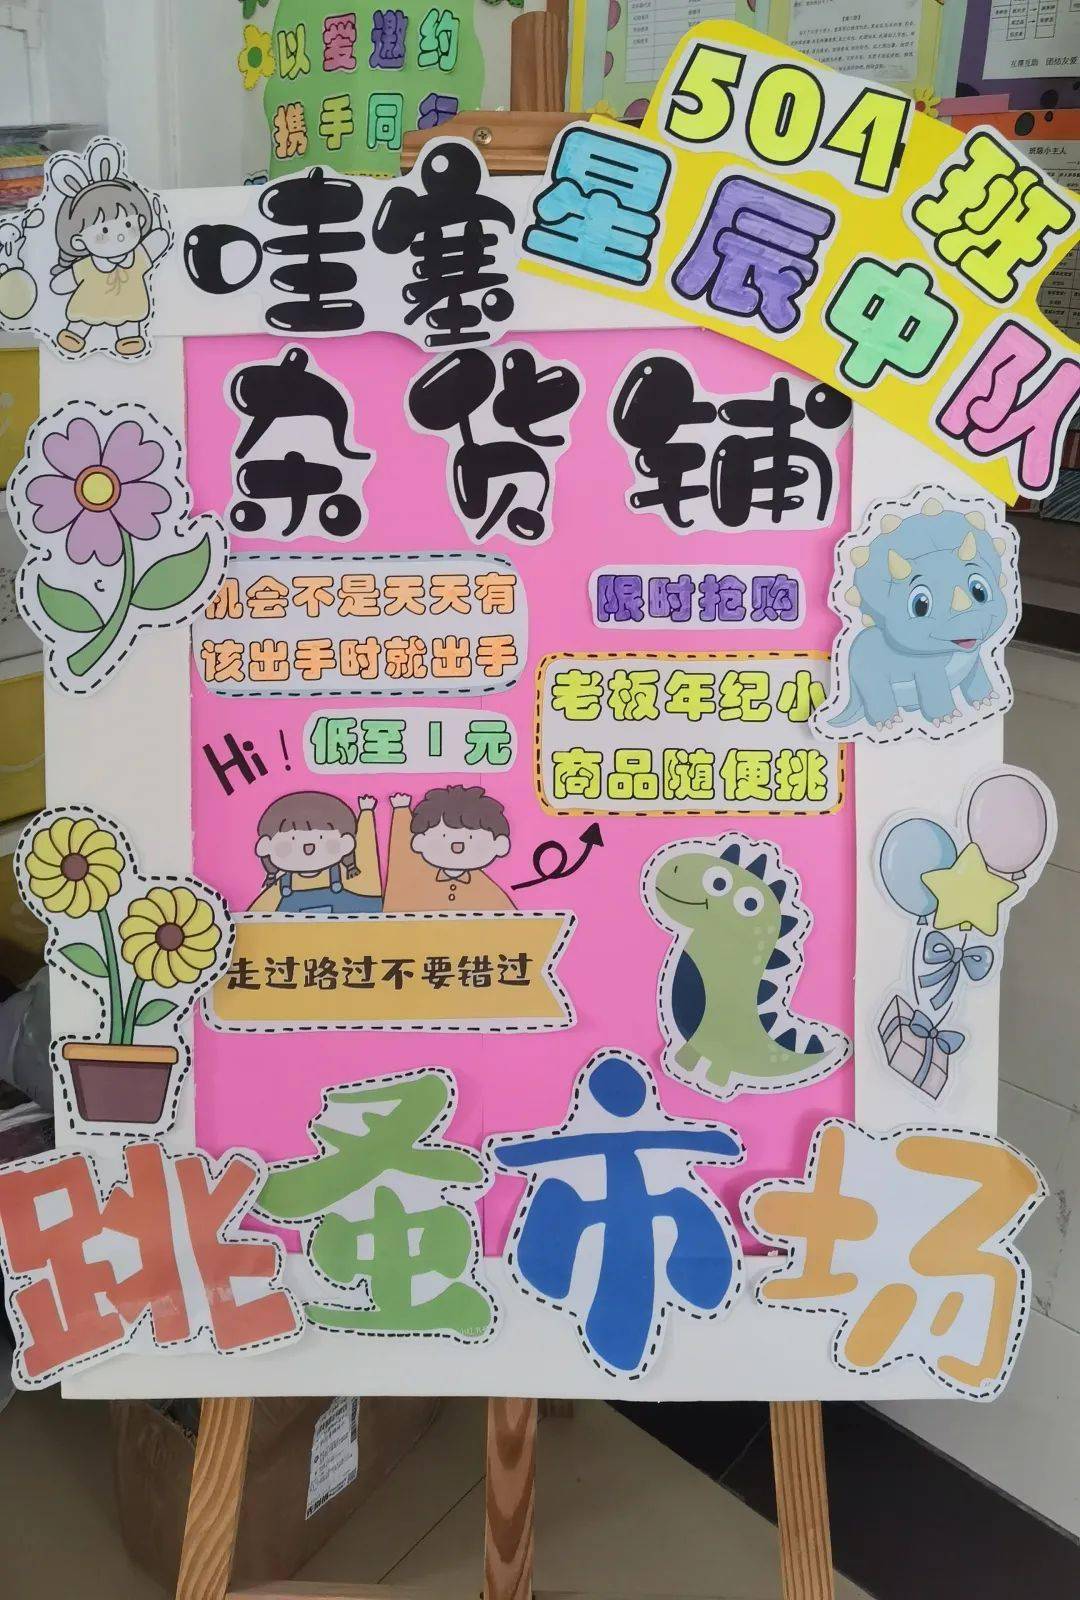 以爱邀约
携手同行
504班
星辰中队
哇塞
杂货铺
机会不是天天有
该出手时就出手
限时抢购
老板年纪小
商品随便挑
Hi！
低至1元
走过路过不要错过
跳蚤市场
互帮互助 团结友爱
班级小主人